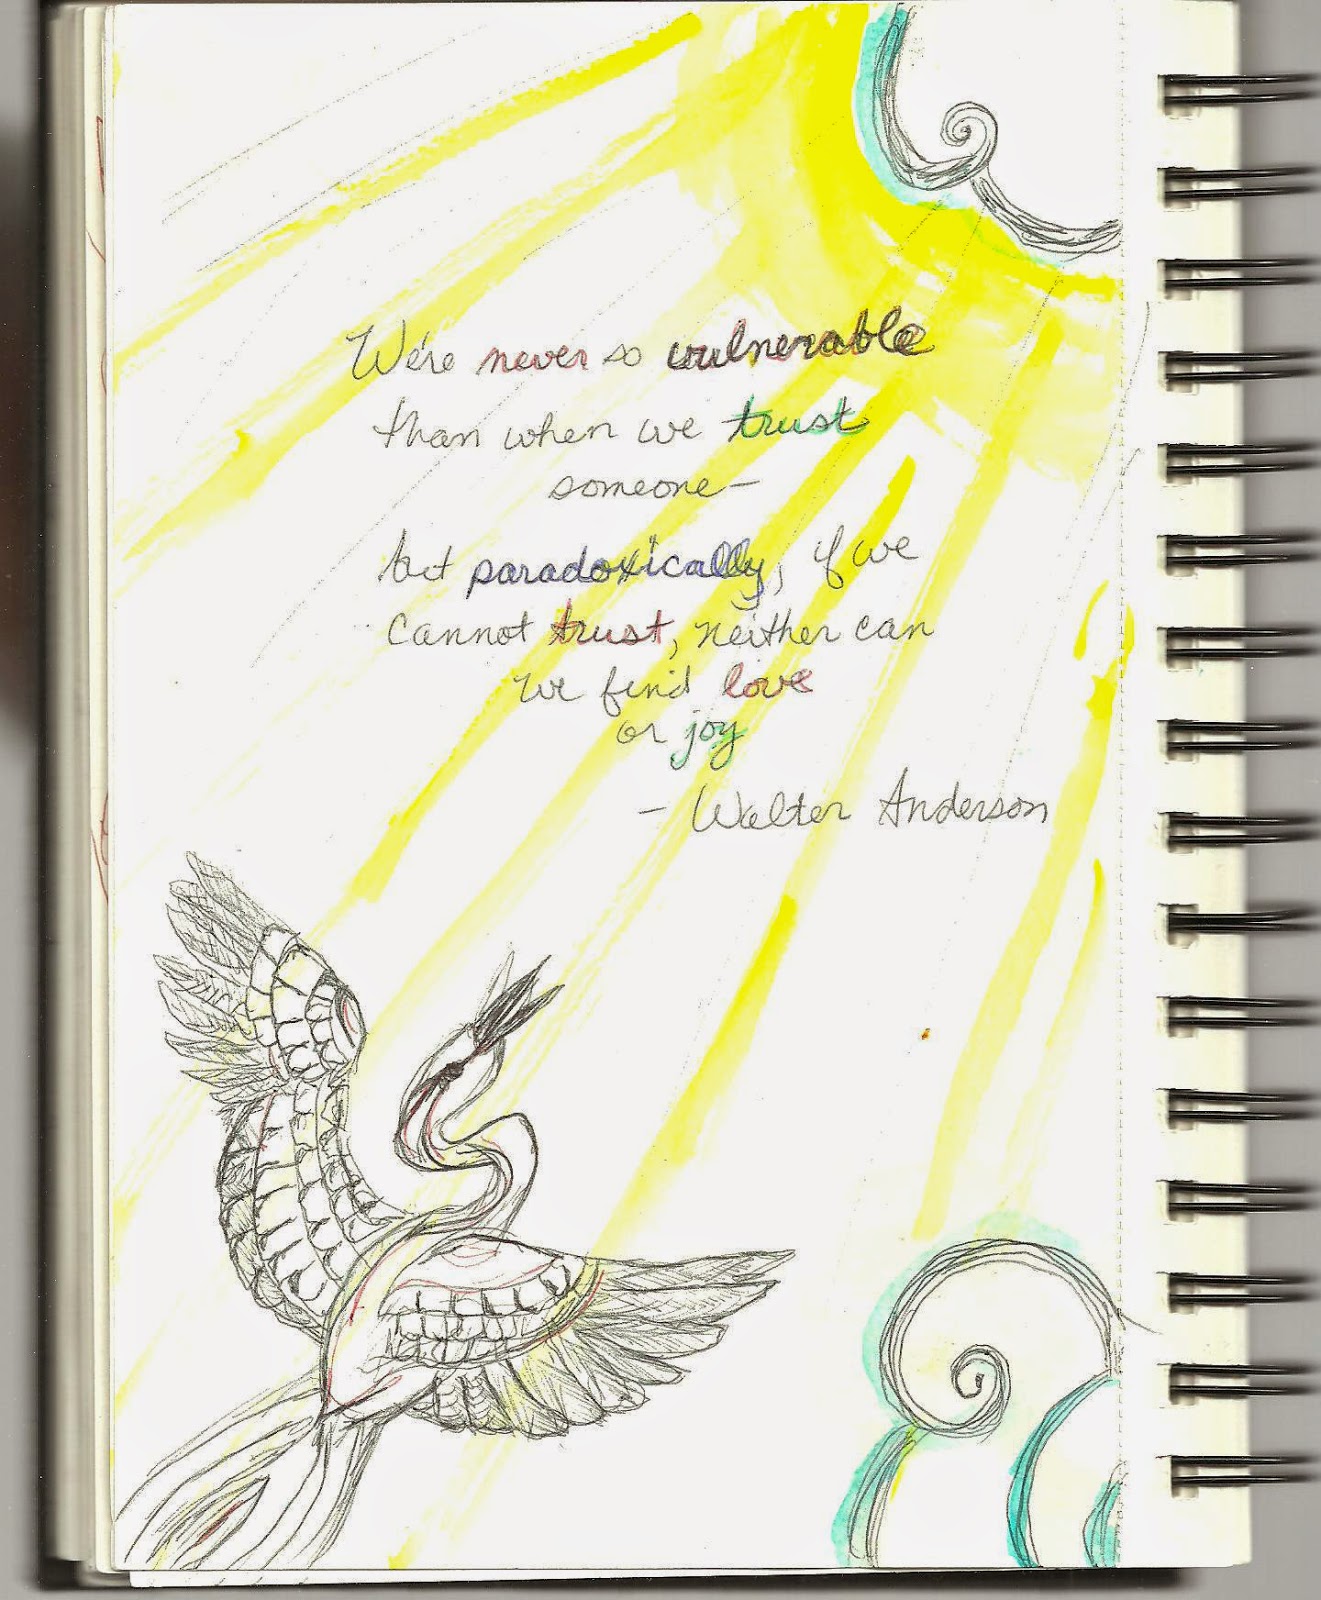 We're never so vulnerable
than when we trust
someone—
but paradoxically, if we
cannot trust, neither can
we find love
or joy
- Walter Anderson